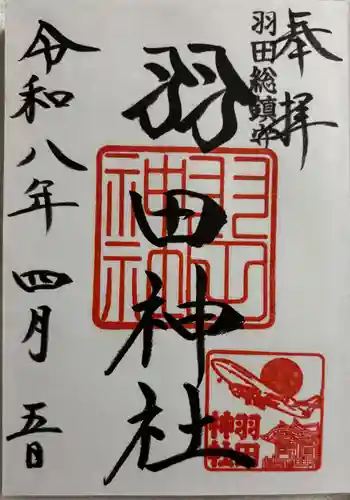 奉拝
羽田総鎮守
羽田神社
羽田神社
羽田
神社
令和八年 四月 五日